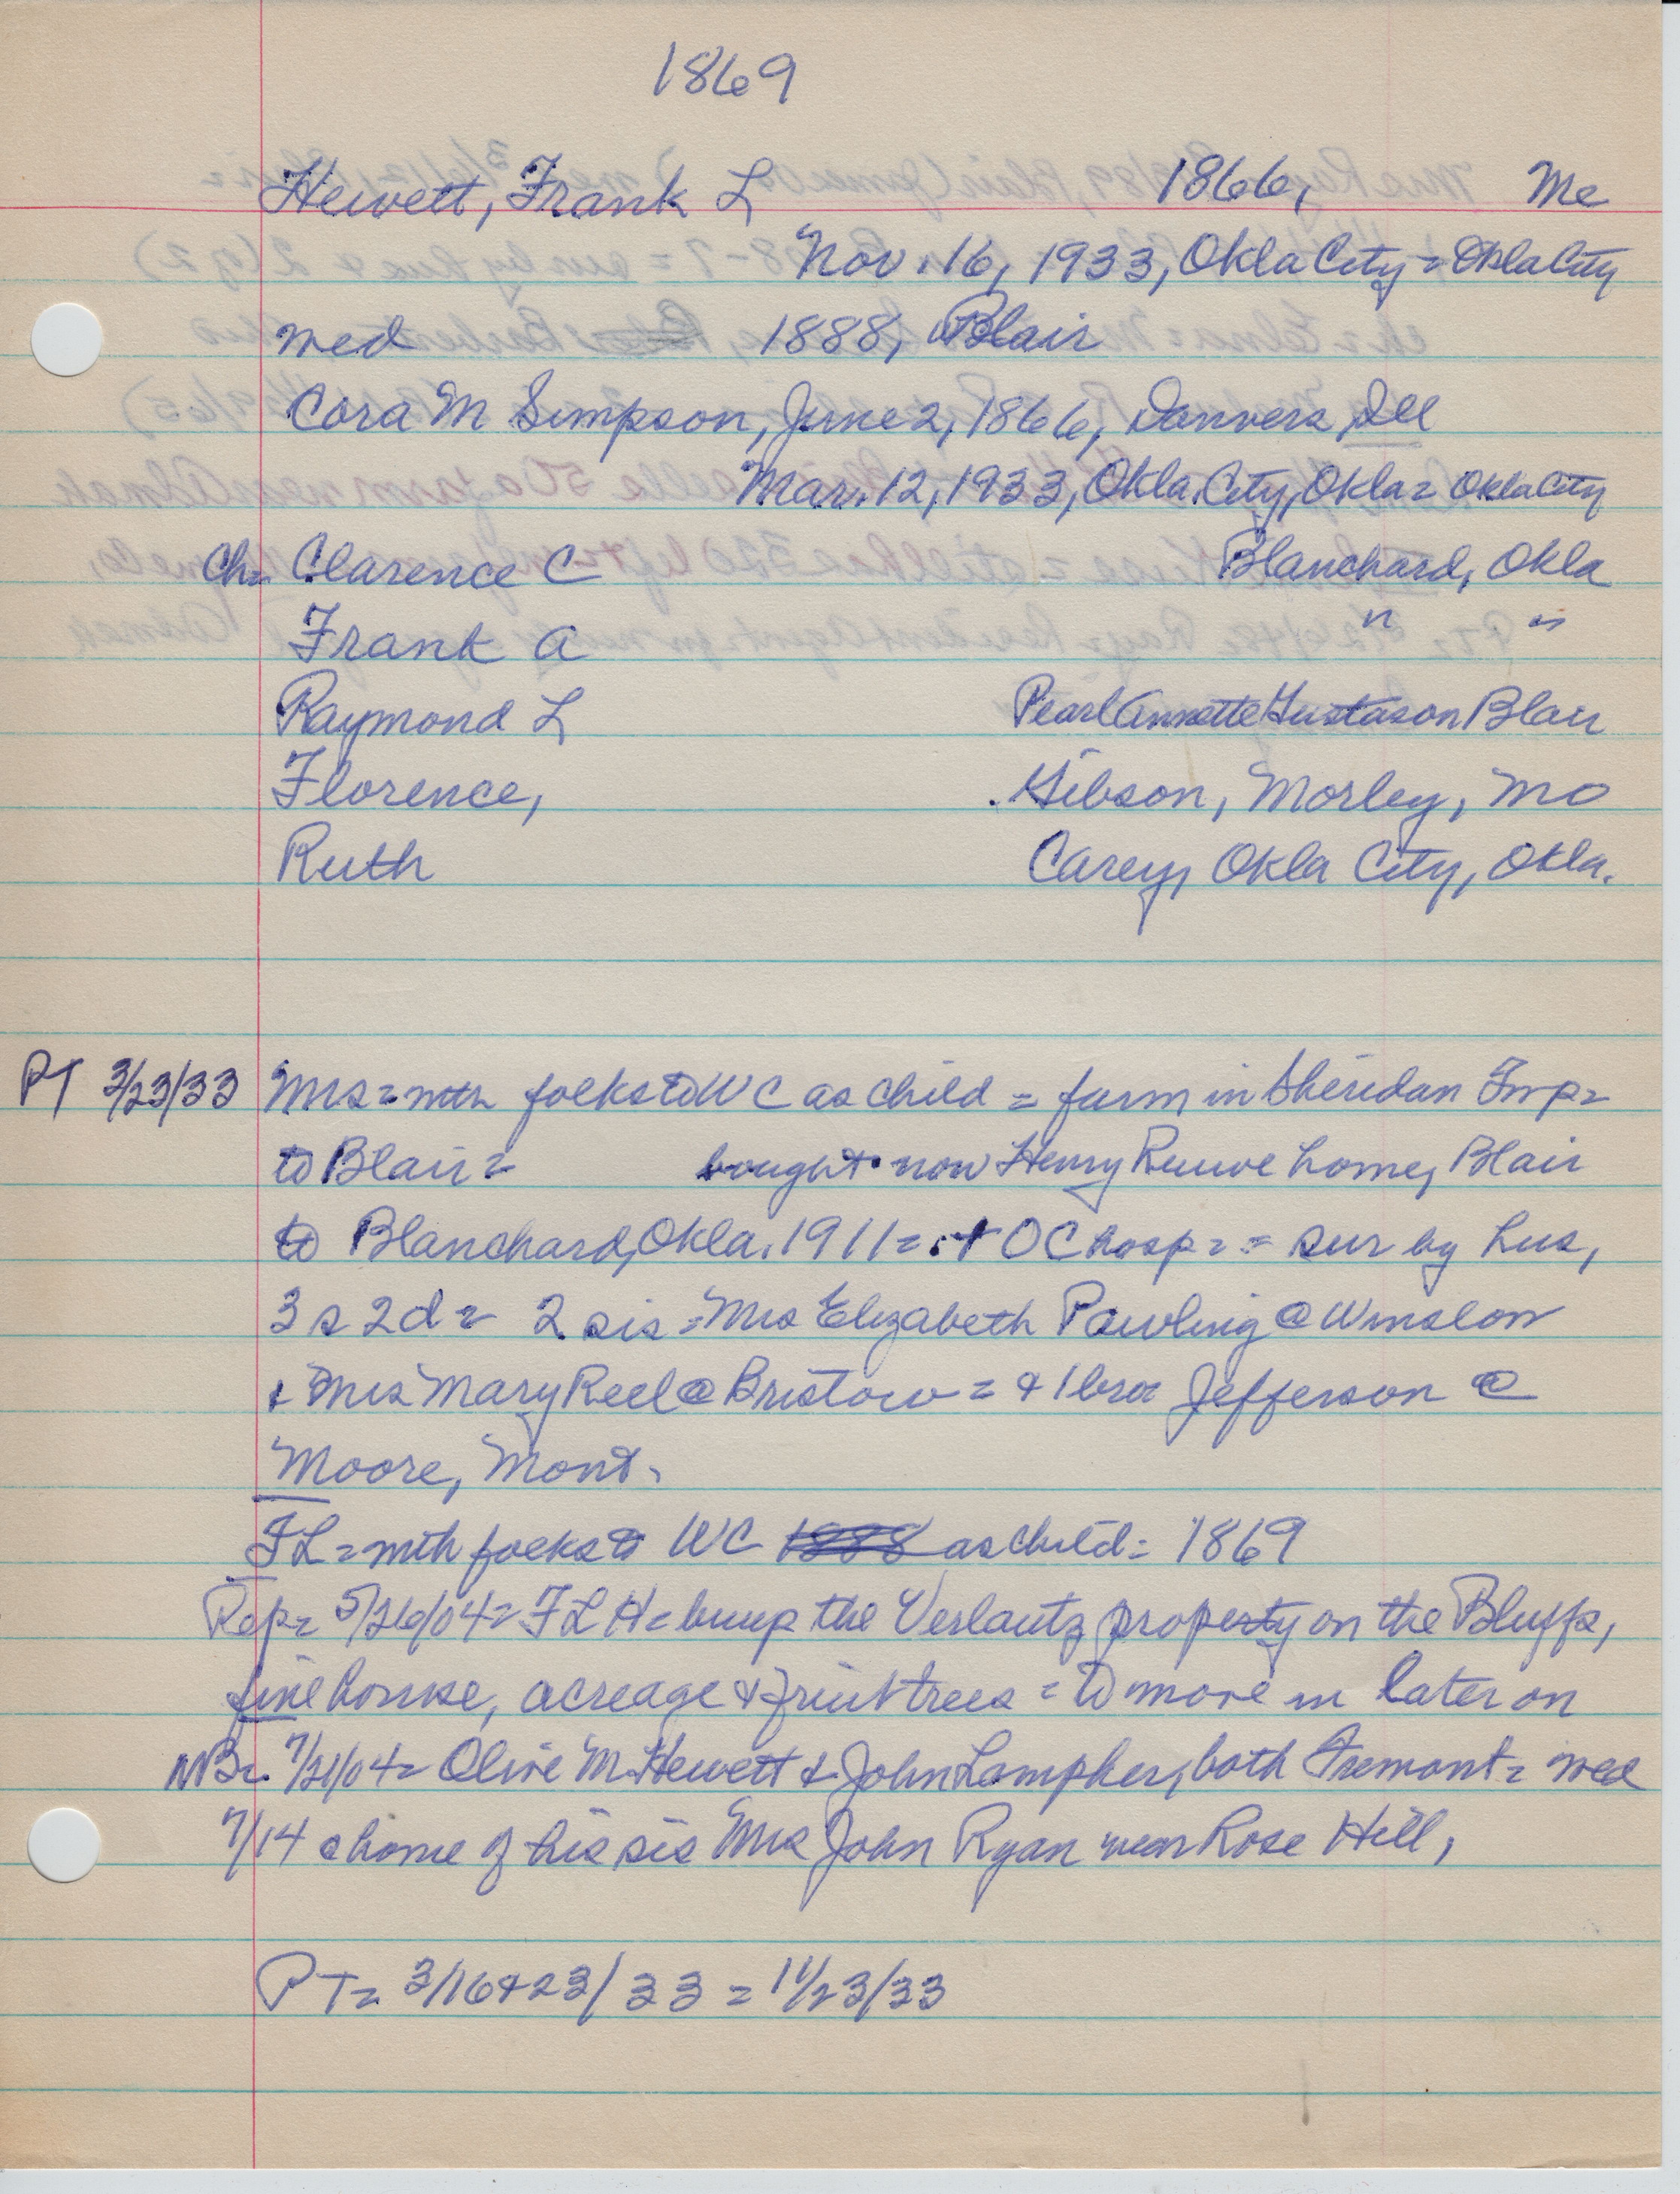 1869
Hewett, Frank L 1866, Me
Nov. 16, 1933, Okla City = Okla City
wed 1888, Blair
Cora M Simpson, June 2, 1866, Danvers, Ill
Mar. 12, 1933, Okla. City, Okla = Okla City
Ch= Clarence C Blanchard, Okla
Frank A " "
Raymond L Pearl Annette Gustason Blair
Florence, Gibson, Morley, Mo
Ruth Carey, Okla City, Okla.
PT 3/23/33 Mrs = with folks to WC as child = farm in Sheridan Twp=
to Blair = bought now Henry Ruwe home, Blair
to Blanchard, Okla. 1911 = + OC hosp = = sur by hus,
3 s 2 d = 2 sis = Mrs Elizabeth Pawling @ Winslow
& Mrs Mary Reel @ Bristow = & 1 bro Jefferson @
Moore, Mont.
FL = with folks to WC 1888 as child = 1869
Rep= 5/26/04= F L H = buys the Verlautz property on the Bluffs,
fine house, acreage & fruit trees = to move in later on
NB= 7/21/04= Olive M Hewett & John Lampher, both Fremont = wed
7/14 @ home of his sis Mrs John Ryan near Rose Hill,
PT= 3/16 & 23/33 = 11/23/33